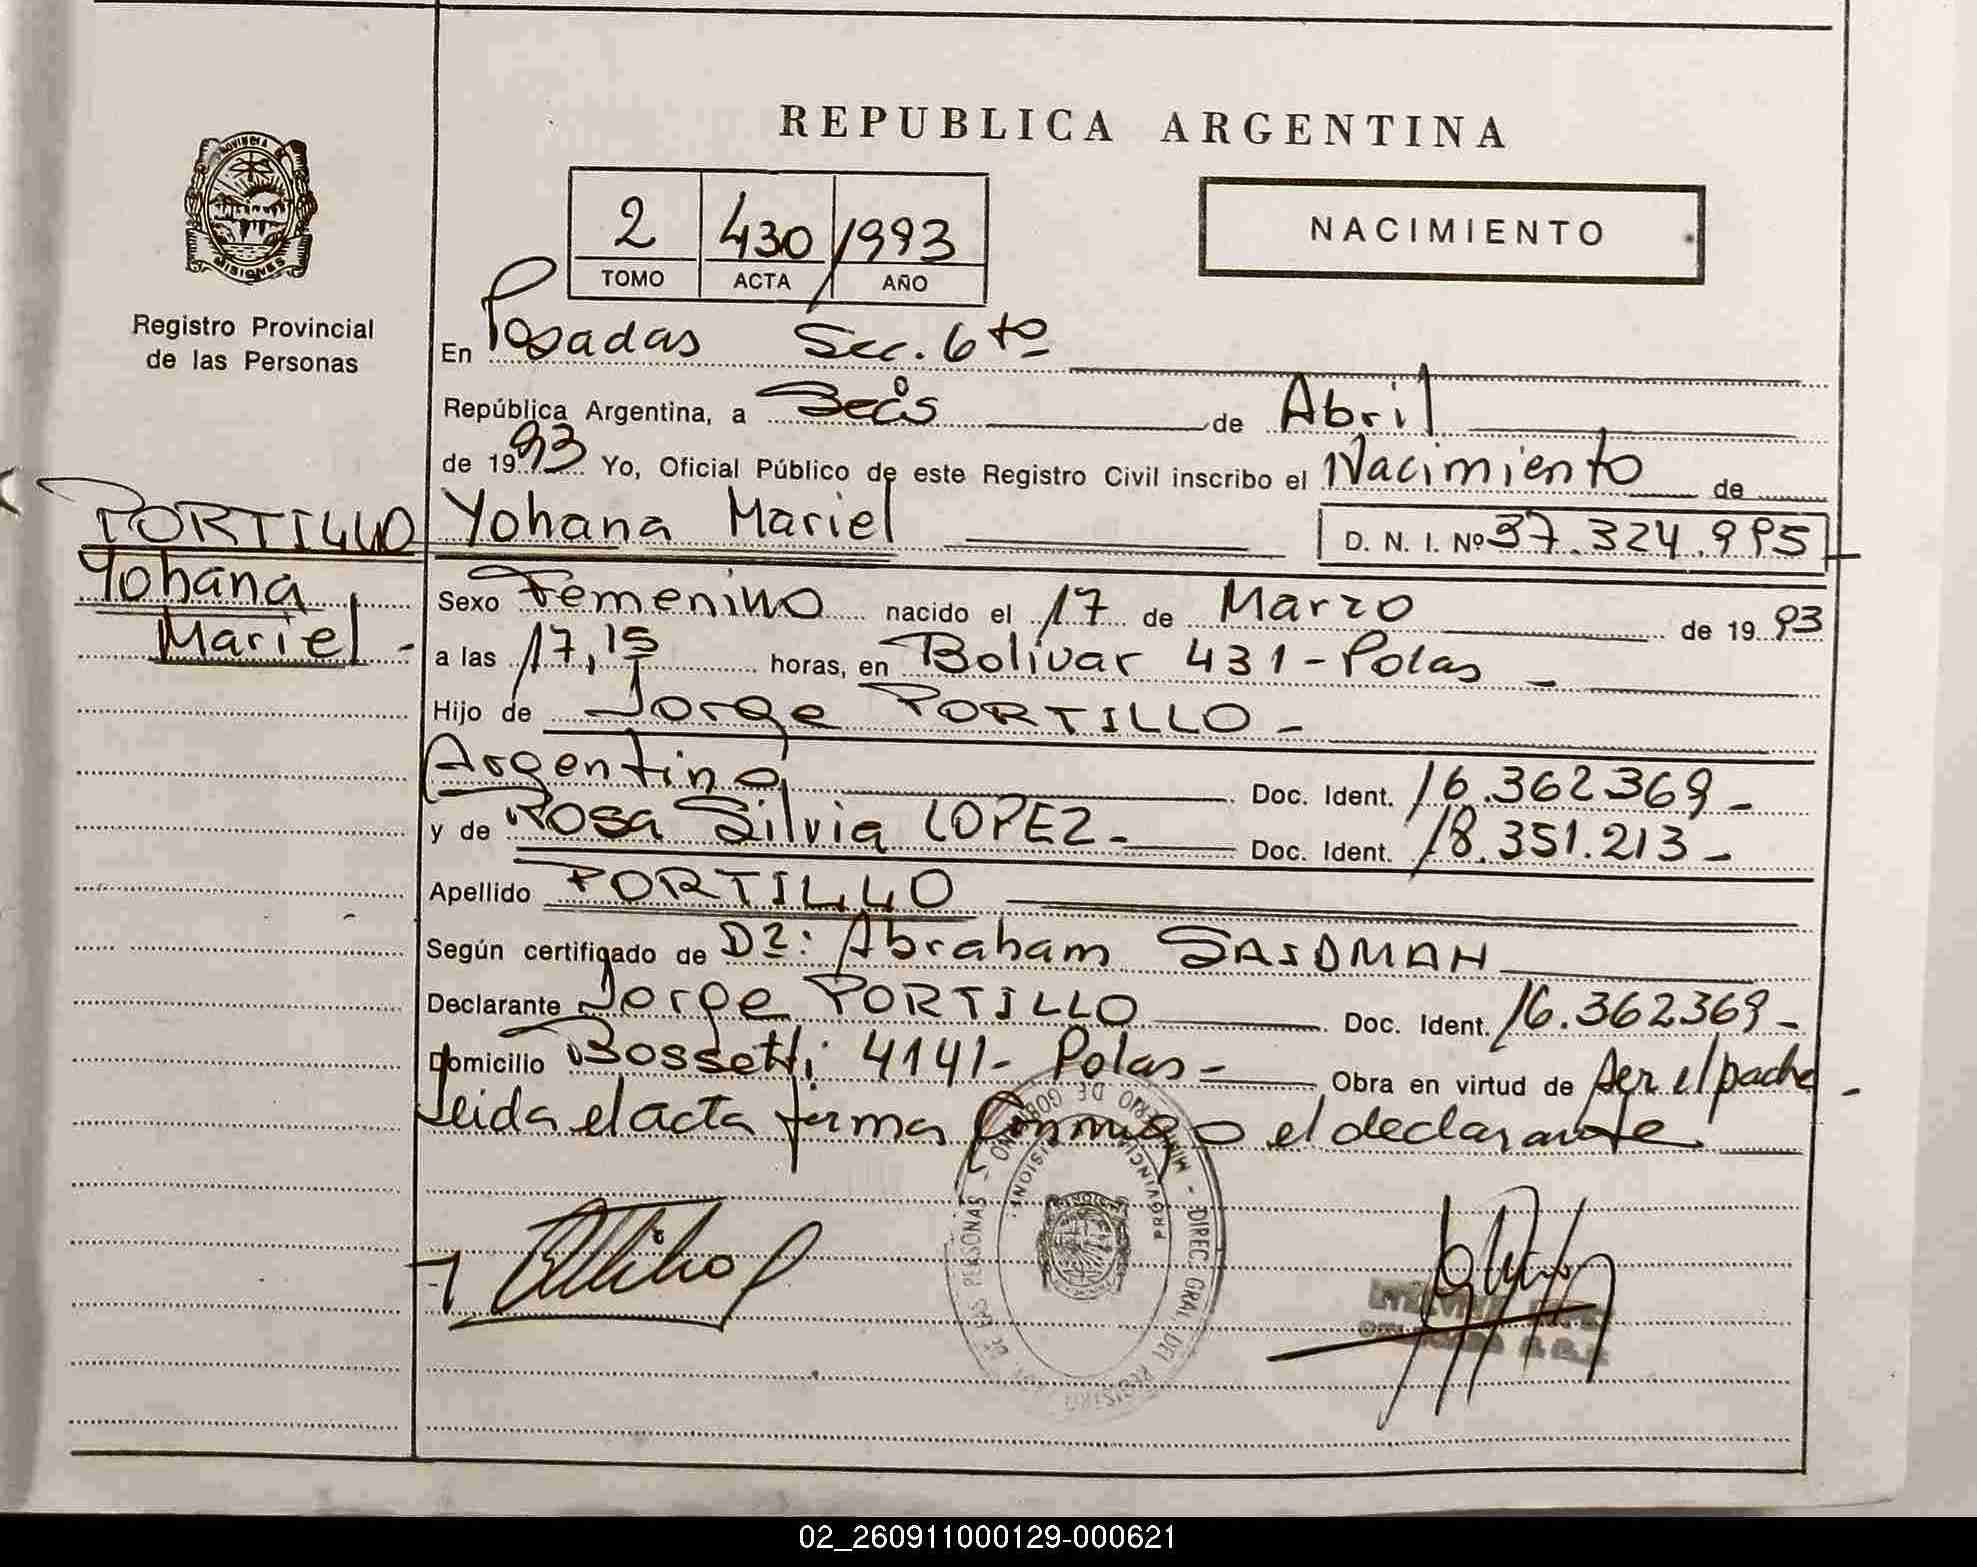 REPUBLICA ARGENTINA
PROVINCIA
MISIONES
Registro Provincial
de las Personas
2 430 1993
TOMO ACTA AÑO
NACIMIENTO
En Posadas Sec. 6to
República Argentina, a Seis de Abril
de 1993 Yo, Oficial Público de este Registro Civil inscribo el Nacimiento de
PORTILLO Yohana Mariel D. N. I. Nº 37.324.995
Yohana
Mariel -
Sexo Femenino nacido el 17 de Marzo de 1993
a las 17,15 horas, en Bolivar 431 - Pdas -
Hijo de Jorge PORTILLO -
Argentino Doc. Ident. 16.362369 -
y de Rosa Silvia LOPEZ - Doc. Ident. 18.351.213 -
Apellido PORTILLO
Según certificado de Abraham
Declarante Jorge PORTILLO Doc. Ident. 16.362369 -
Domicilio Bossetti 4141 - Pdas - Obra en virtud de ser el padre -
Leida el acta firma Conmigo el declarante.
MINISTERIO DE GOBIERNO - DIREC. GRAL. DEL REGISTRO DE LAS PERSONAS
PROVINCIA MISIONES
02_260911000129-000621